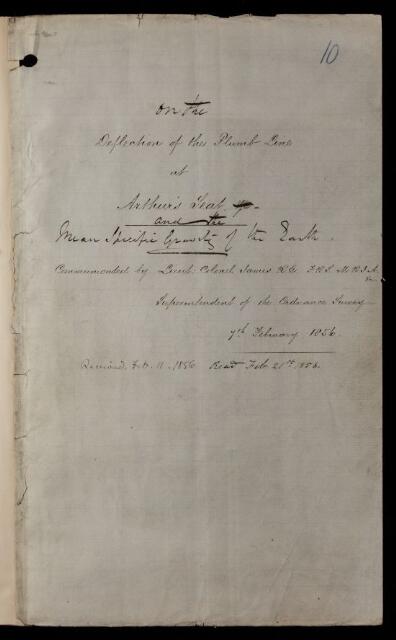 10
On the
Deflection of the Plumb Line
at
Arthur's Seat
and the
Mean Specific Gravity of the Earth.
Communicated by Lieut. Colonel James R.E. F.R.S. M.R.I.A. &c
Superintendent of the Ordnance Survey
7th February 1856.
Received Feb. 11. 1856 Read Feb. 21st 1856.